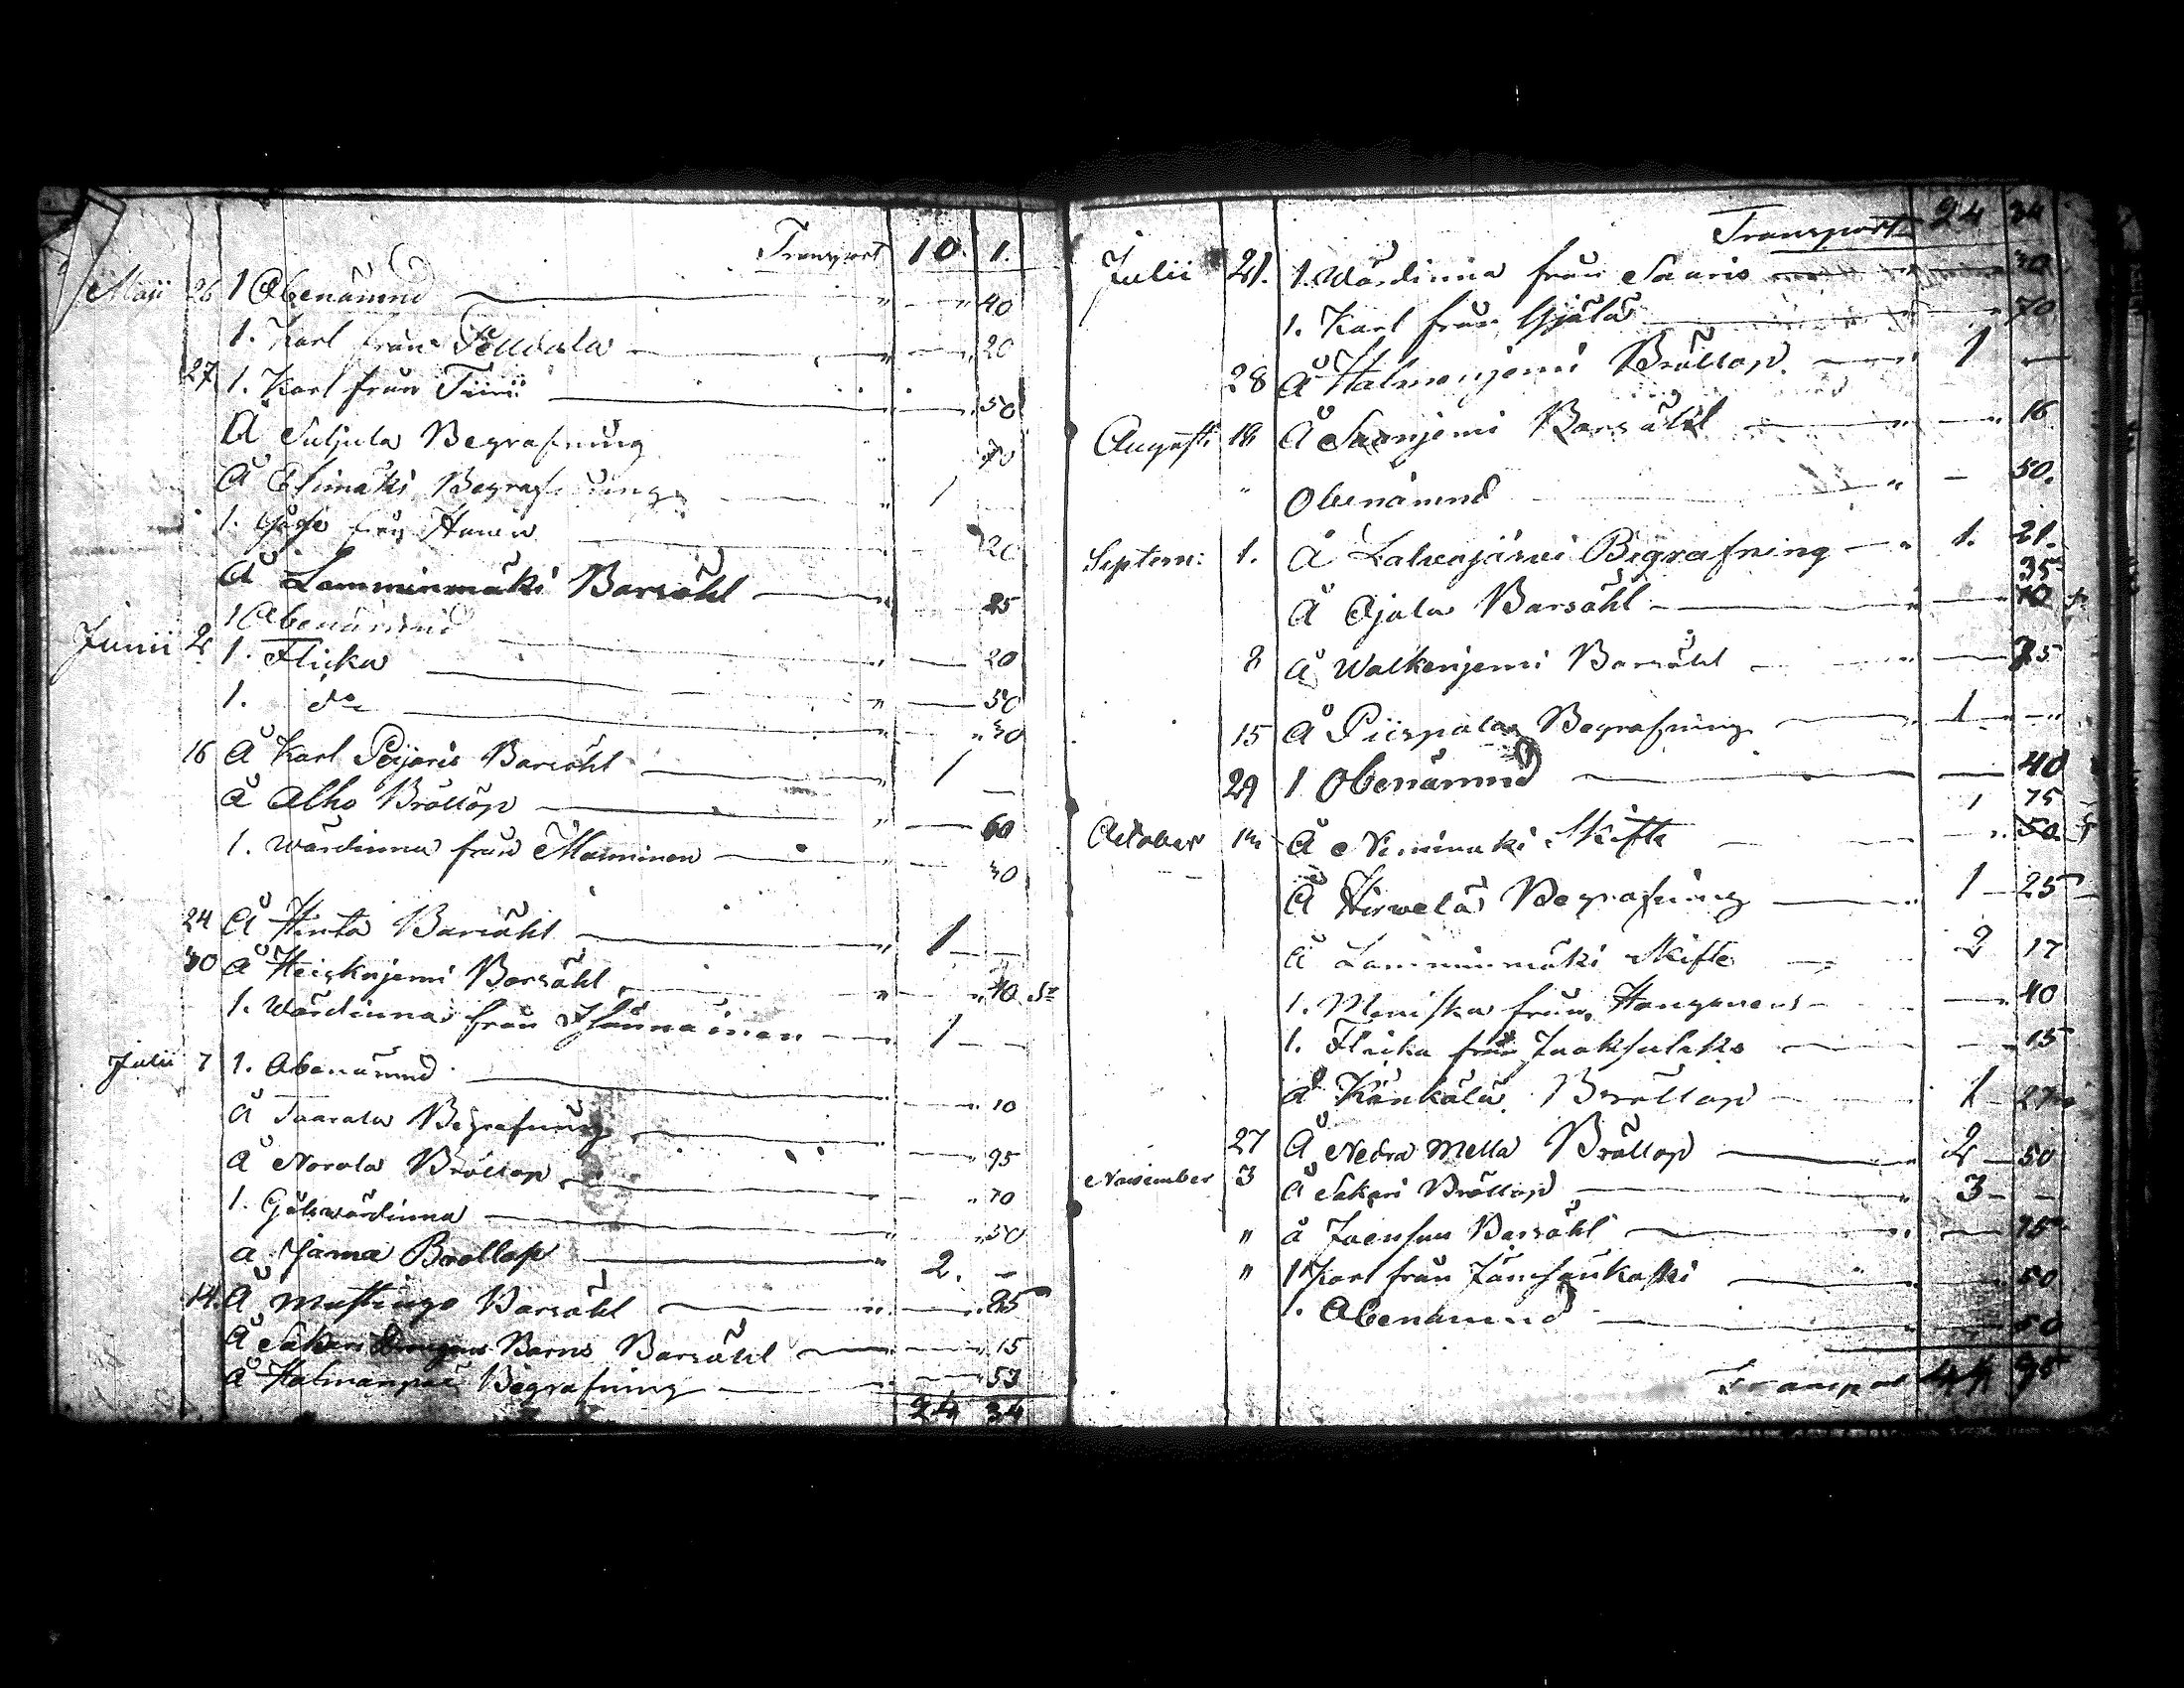 Transport 10. 1.
Maji 26 1 Obenämnd 40
1. Karl från 20
27 1. Karl från 50
Å Suljula Begrafning
Å Elimäki Begrafning 1
1. 20
Å Lamminmäki Barsöhl 25
1 Obenämnd 20
Junii 2 1. Flicka 50
1. do 30
16 Å Karl Barsöhl 1 —
Å Alho Bröllop 60
1. Wärdinna från Manninen 30
24 Å Hinta Barsöhl 1
30 Å Heiskajemi Barsöhl 40 Sr
1. Wärdinna från 1
Julii 7 1. Obenämnd 10
Å Taarala Begrafning 95
Å Norola Bröllop 70
1. 50
å Jama Bröllop 2. —
14. Å Barsöhl 25
Å Sakari Barns Barsöhl 15
Å Halmanpää Begrafning 53
24 34
Transport 24 34
Julii 21. 1. Wärdinna från Saaris 30
1. Karl från 70
28 Å Halmenjemi Bröllop 1 —
Augusti 18 Å Saanjemi Barsöhl 16
" Obenämnd 50.
Septem: 1. Å Lahenjärvi Begrafning 1. 21.
35
Å Ojala Barsöhl
8 Å Walkenjemi Barsöhl
15 Å Piispala Begrafning 1
29 1 Obenämnd 40
1 75
October Å Niemimäki Skifte 50
Å Hirwelä Begrafning 1 25
Å Lamminmäki Skifte 2 17
1. Meniska från 40
1. Flicka från 15
å Känkälä Bröllop 1 27
27 Å Nedra Mella Bröllop 2 50
November 3 Å Sakari Bröllop 3 —
" å Barsöhl 75
" 1 Karl från 50
1. Obenämnd 50
Transport 44 95